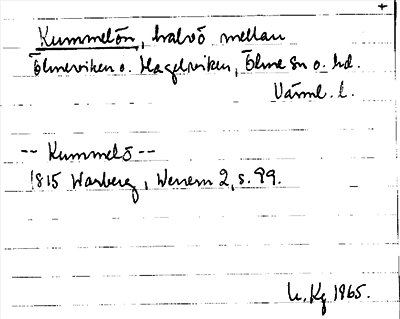 +
Kummelön, halvö mellan
Ölmeviken o. Hagelviken, Ölme Sn o. hd.
Värml. l.
-- Kummelö --
1815 Warberg, Wenern 2, s. 99.
1965.